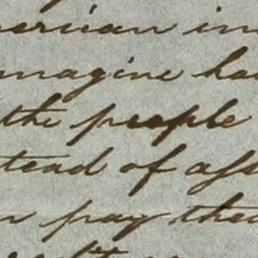 erican in
magine ha
the people
tead of ass
pay thei